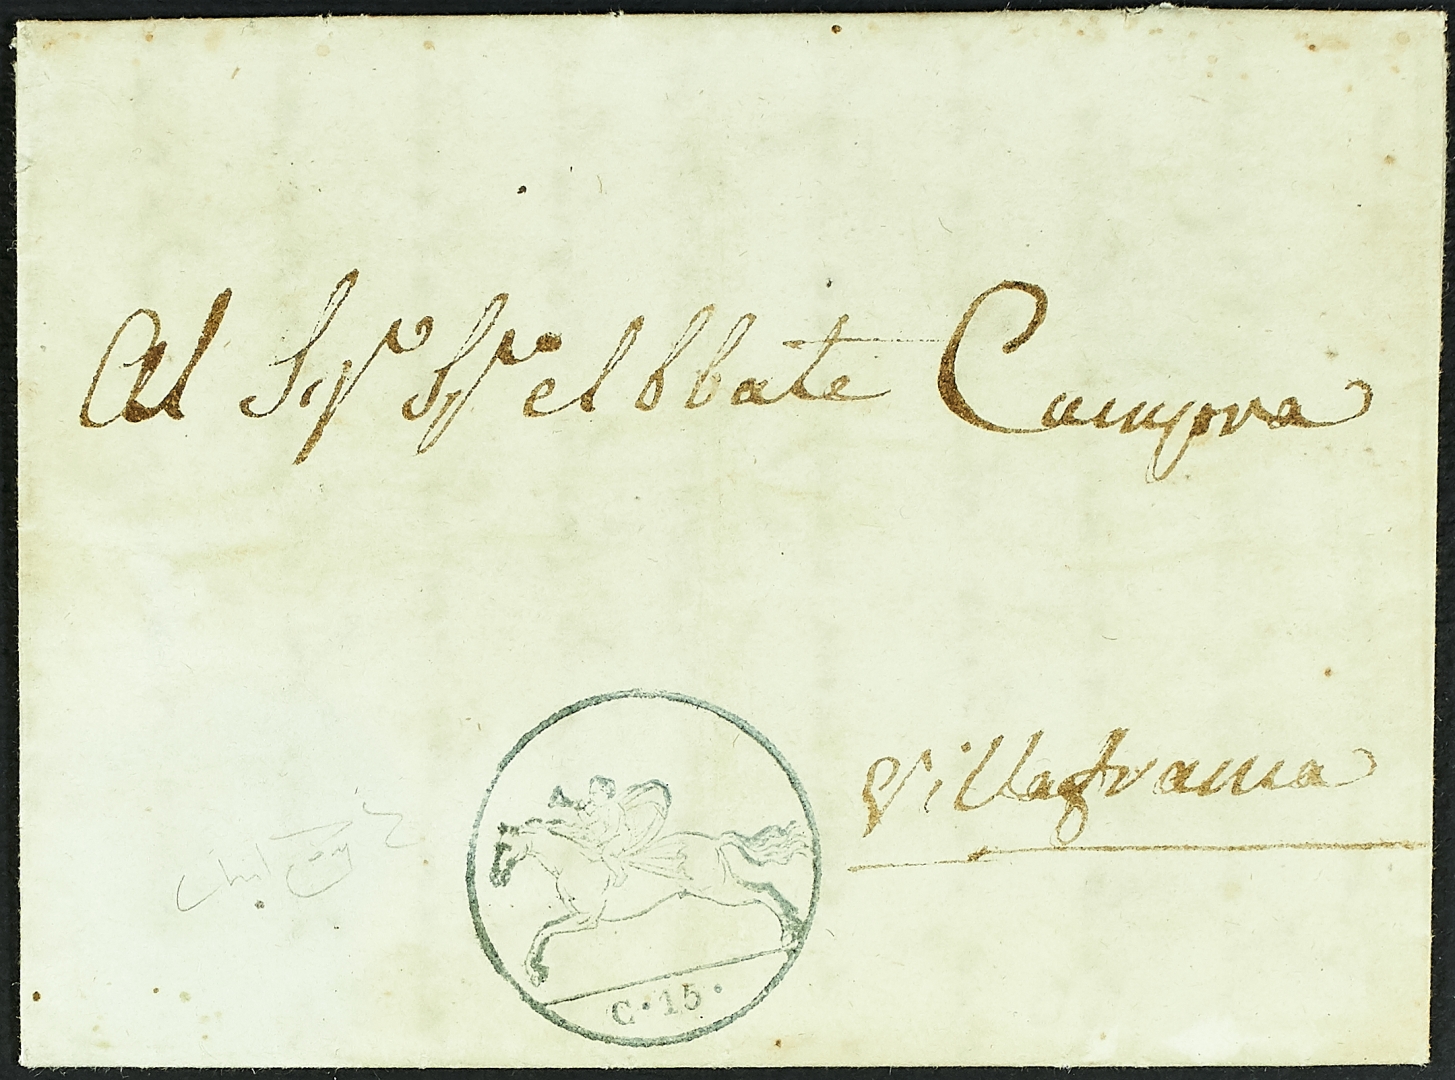 Al Sigr Sigr elbbate Campra
Villafranca
C · 15 ·